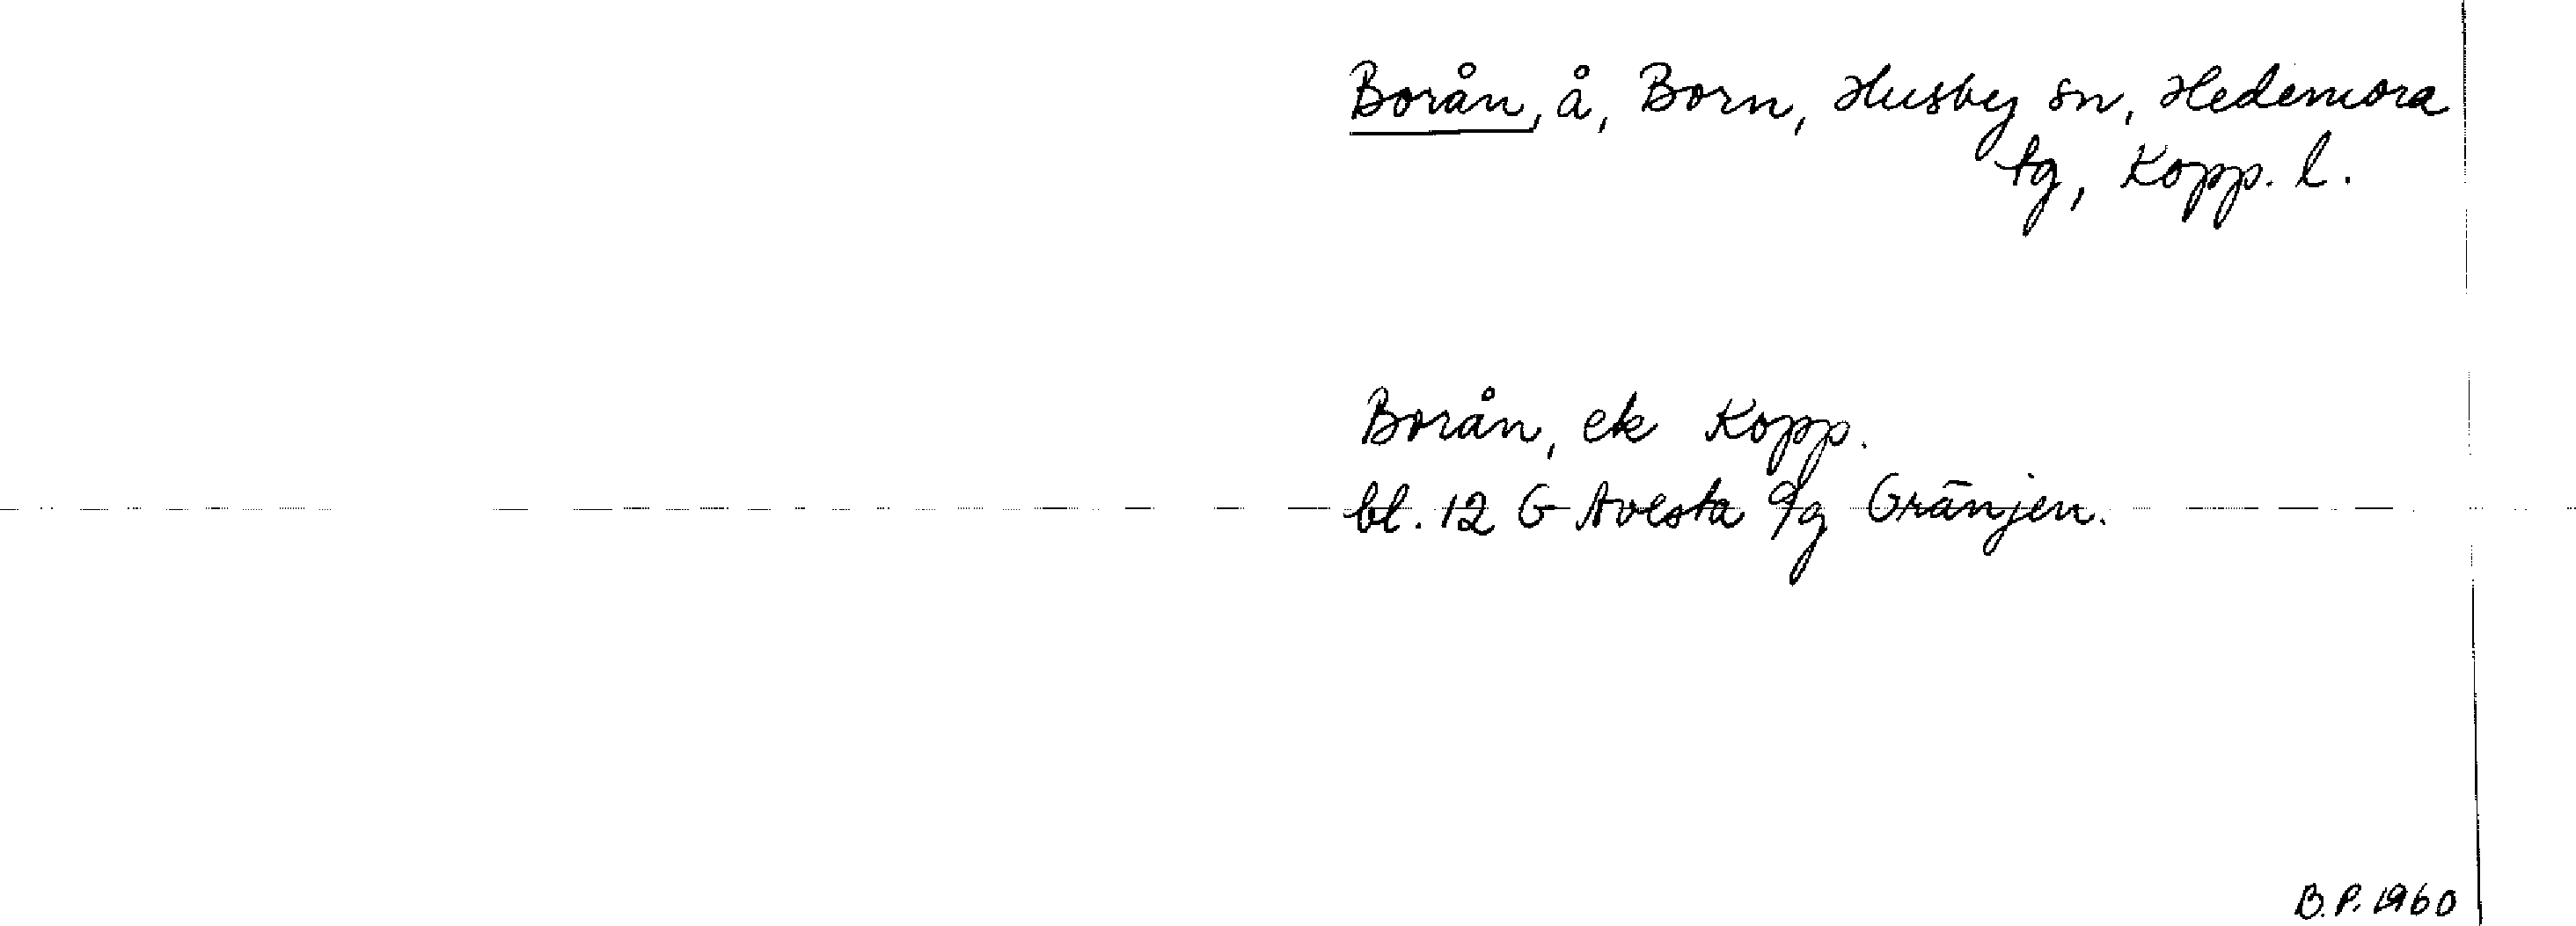 Borån, å, Born, Husby sn, Hedemora
tg, Kopp. l.
Borån, ek Kopp.
bl. 12 G Avesta 9g Gränjen.
B.P. 1960